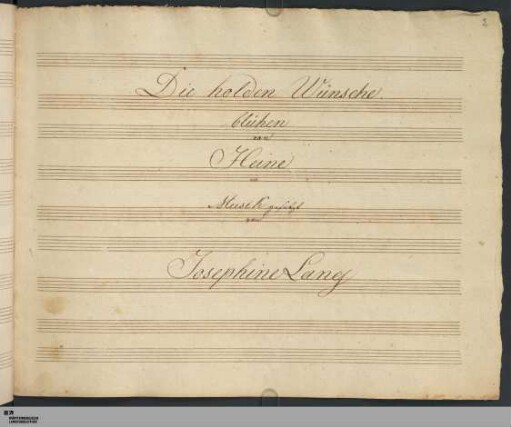 2
Die holden Wünsche
blühen
von
Heine
Musik gesetzt
von
Josephine Lang